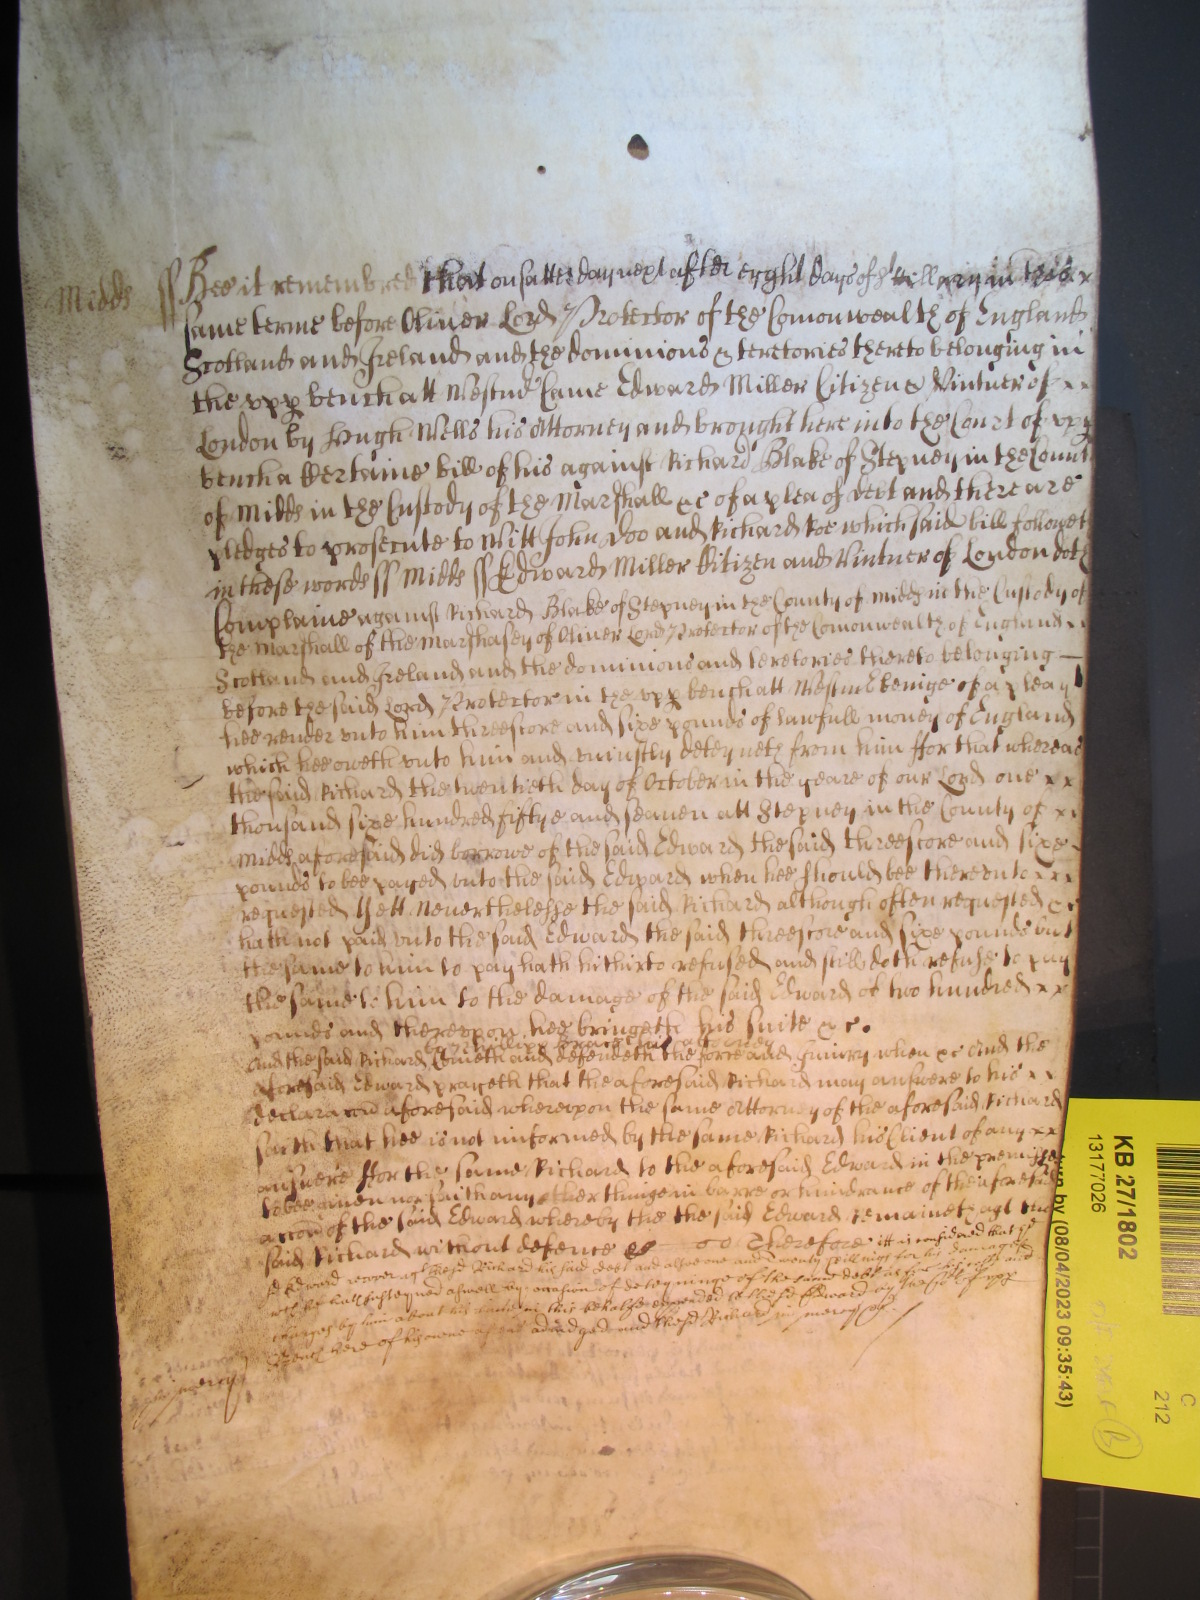 Midds ss Bee it remembred that on satterday next after eyght dayes of St Hillary in this x
same terme before Oliver Lord Protector of the Comonwealth of England
Scotland and Ireland and the dominions & teretories thereto belonging in
the upp bench att Westmr Came Edward Miller Citizen & Vintner of x x
London by Hugh Wells his Attorney and brought here into the Court of upp
bench a Certaine bill of his against Richard Blake of Stepney in the Count
of Midds in the Custody of the Marshall &c of a plea of debt and there are
pledges to prosecute to Witt John Doo and Richard Roe which said bill followet
in these words ss Midds ss Edward Miller Citizen and Vintner of London doth
Complaine against Richard Blake of Stepney in the County of Midds in the Custody of
the Marshall of the Marshalsey of Oliver Lord Protector of the Comonwealth of England x x
Scotland and Ireland and the dominions and teretories thereto belonging —
before the said Lord Protector in the upp bench att Westm beinge of a plea yt
hee render unto him threescore and sixe pounds of lawfull money of England
which hee oweth unto him and uniustly deteyneth from him ffor that whereas
the said Richard the twentieth day of October in the yeare of our Lord one x x
thousand sixe hundred fiftye and seaven att Stepney in the County of x x
Midds aforesaid did borrowe of the said Edward the said threescore and sixe
pounds to bee payed unto the said Edward when hee should bee thereunto x x x
requested Yett Neverthelesse the said Richard although often requested &c
hath not paid unto the said Edward the said threescore and sixe pounds but
the same to him to pay hath hitherto refused and still doth refuse to pay
the same to him to the damage of the said Edward of two hundred x x
pounds and thereupon hee bringeth his suite &c.
by Phillipp his attorney
And the said Richard Cometh and defendeth the force and Iniury when &c And the
aforesaid Edward prayeth that the aforesaid Richard may answere to his x x
declaracon aforesaid whereupon the same Attorney of the aforesaid Richard
saith that hee is not informed by the same Richard his Client of any x x
answere ffor the same Richard to the aforesaid Edward in the premisses
to bee given nor saith any other thinge in barre or hindrance of the aforesaid
accon of the said Edward whereby the the said Edward remaineth agt the
said Richard without defence Therefore itt is considered that ye
sd Edward recover agt the sd Richard his said debt and alsoe one and twenty shillings for his damages
wch hee hath susteyned aswell by occasion of deteyninge of the same debt as for his costs and
charges by him about his suite in this behalfe expended to the sd Edward by the Court of upp
Bench here of his owne assent adiudged And the sd Richard in mercy &c
mercy
KB 27/1802
13177026
by (08/04/2023 09:35:43)
C
212